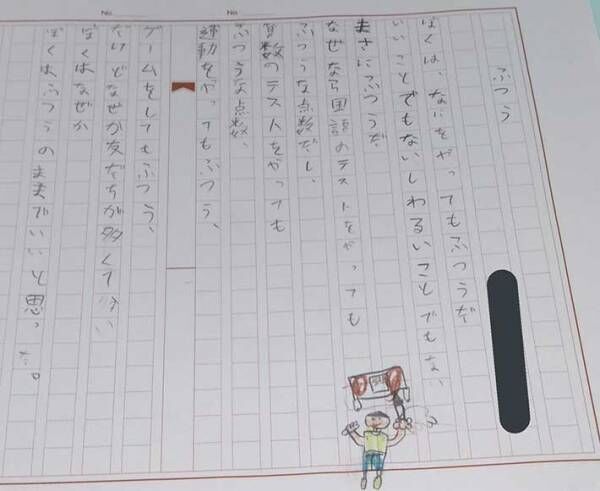 No.
No.
ふつう
ぼくは、なにをやってもふつうだ
いいことでもないしわるいことでもない、
まさにふつうだ
なぜなら国語のテストをやっても
ふつうな点数だし、
算数のテストをやっても
ふつうな点数、
運動をやってもふつう、
ゲームをしてもふつう、
だけどなぜか友だちが多くて
ぼくはなぜか
ぼくはふつうのままでいいと思った。